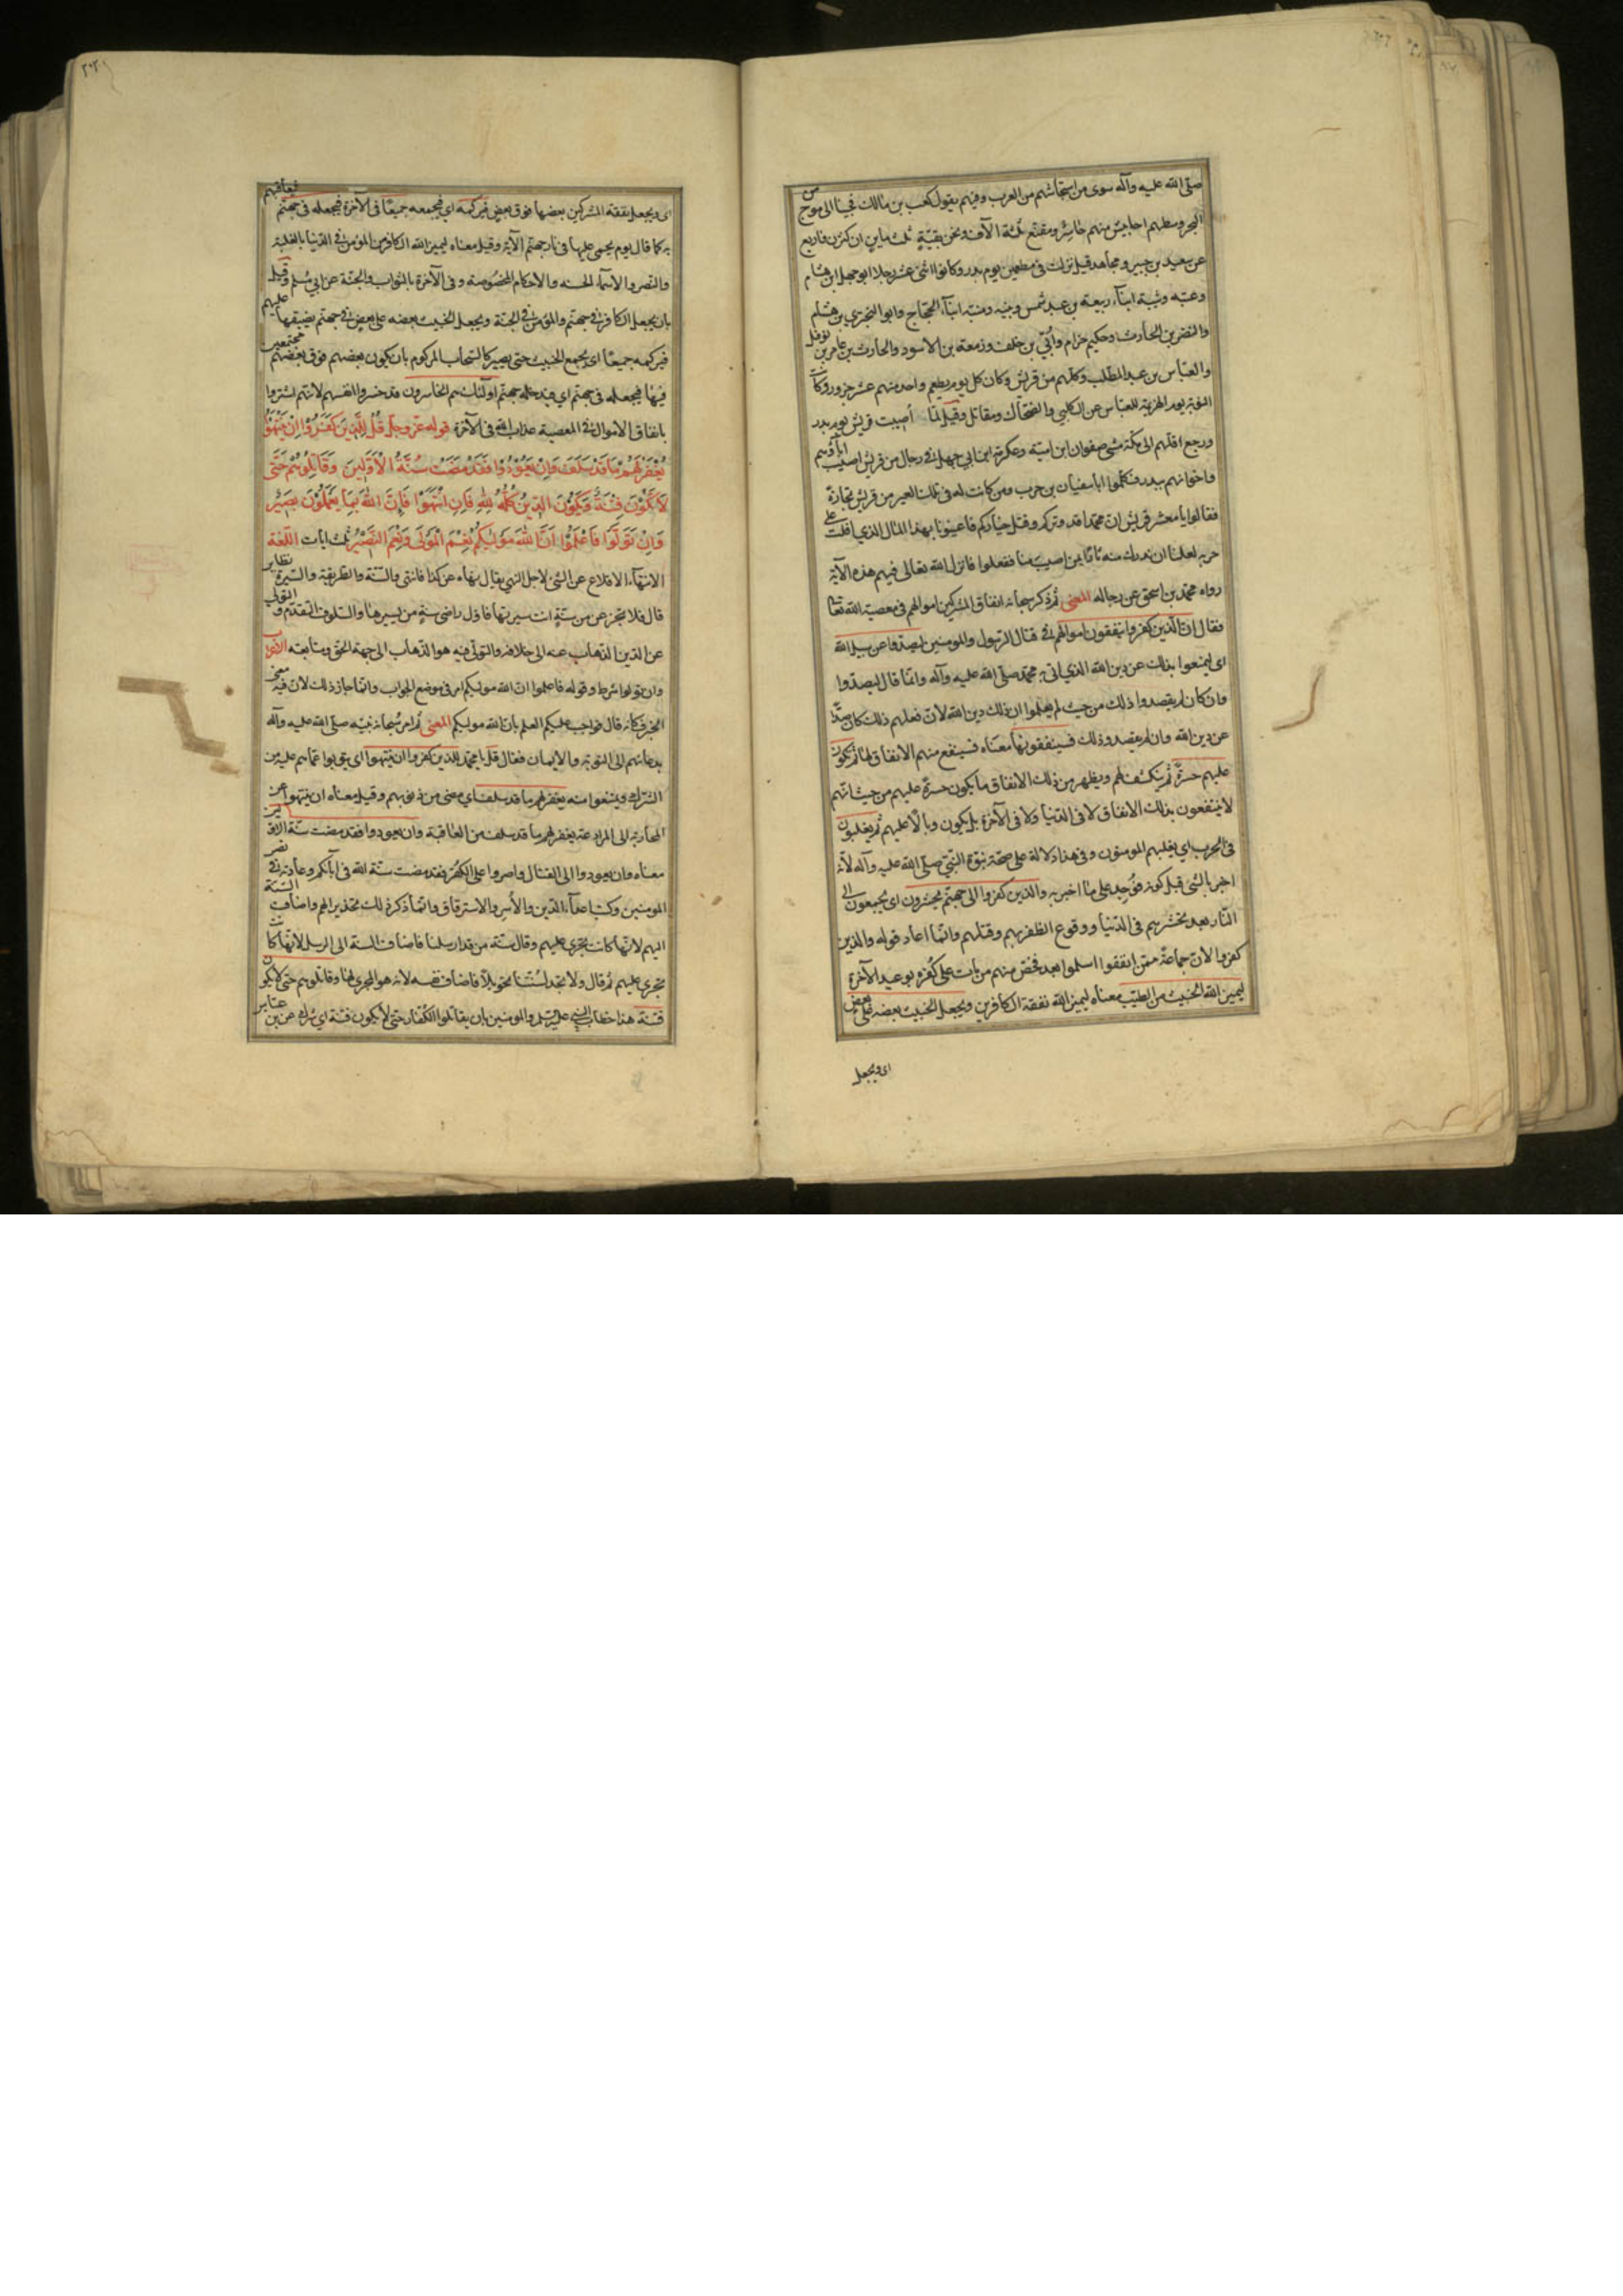 صلى الله عليه وآله سوى من استجاشهم من العرب وفيهم يقول كعب بن مالك فجينا الى موج من
البحر وسطهم احابيش منهم حاسر ومقنع ثلثة الآف ونحن بقية ثلث ماين ان كثرن فاربع
عن سعيد بن جبير ومجاهد قيل نزلت في مطعمين يوم بدر وكانوا اثنى عشر رجلا ابو جهل ابن هشام
وعتبه وشيبة ابنا ربيعة بن عبد شمس ونبيه ومنبه ابنا الحجاج وابو البختري بن هشام
والنضر بن الحارث وحكيم حزام وأبي بن خلف وزمعة بن الاسود والحارث بن عامر بن نوفل
والعباس بن عبد المطلب وكلهم من قريش وكان كل يوم يطعم واحد منهم عشر جزور وكانت
النوبة يوم الهزيمة للعباس عن الكلبي والضحاك ومقاتل وقيل لما أصيبت قريش يوم بدر
ورجع فلهم الى مكة مشى صفوان ابن امية وعكرمة ابن ابي جهل في رجال من قريش اصيب آباؤهم
واخوانهم ببدر فكلموا ابا سفيان بن حرب ومن كانت له في تلك العير من قريش تجارة
فقالوا يا معشر قريش ان محمدا قد وتركم وقتل خياركم فاعينونا بهذا المال الذي افلت على
حربه لعلنا ان ندرك منه ثارا بمن اصيب منا ففعلوا فانزل الله تعالى فيهم هذه الآية
رواه محمد بن اسحق عن رجاله المعنى ثم ذكر سبحانه انفاق المشركين اموالهم في معصية الله تعالى
فقال ان الذين كفروا ينفقون اموالهم في قتال الرسول والمومنين ليصدوا عن سبيل الله
اي ليمنعوا بذلك عن دين الله الذي اتى به محمد صلى الله عليه وآله وانما قال ليصدوا
وان كان لم يقصدوا ذلك من حيث لم يعلموا ان ذلك دين الله لان فعلهم ذلك كان صدا
عن دين الله وان لم يقصدوا ذلك فسينفقونها معناه فسيقع منهم الانفاق لها ثم تكون
عليهم حسرة ثم ينكشف لهم ويظهر من ذلك الانفاق ما يكون حسرة عليهم من حيث انهم
لا ينتفعون بذلك الانفاق لا في الدنيا ولا في الآخرة بل يكون وبالا عليهم ثم يغلبون
في الحرب اي يغلبهم المومنون وفي هذا دلالة على صحة نبوة النبي صلى الله عليه وآله لانه
اخبر بالشئ قبل كونه فوجد على ما اخبر به والذين كفروا الى جهنم يحشرون اي يجمعون الى
النار بعد تحشرهم في الدنيا ووقوع الظفر بهم وقتلهم وانما اعاد قوله والذين
كفروا لان جماعة ممن انفقوا اسلموا بعد فخص منهم من مات على كفره بوعيد الآخرة
ليميز الله الخبيث من الطيب معناه ليميز الله نفقة الكافرين ويجعل الخبيث بعضه على بعض
اي ويجعل
اي ويجعل نفقة المشركين بعضها فوق بعض فيركمه اي فيجمعه جميعا في الآخرة فيجعله في جهنم فيعاقبهم
به كما قال يوم يحمى عليها في نار جهنم الآية وقيل معناه ليميز الله الكافر من المؤمن في الدنيا بالغلبة
والنصر والاسماء الحسنه والاحكام المخصوصة وفي الآخرة بالثواب والجنة عن ابي مسلم وقيل
بان يجعل الكافر في جهنم والمؤمن في الجنة ويجعل الخبيث بعضه على بعض في جهنم يضيقها عليهم
فيركمه جميعا اي يجمع الخبيث حتى يصير كالسحاب المركوم بان يكون بعضهم فوق بعضهم مجتمعين
فيها فيجعله في جهنم اي فيدخله جهنم اولئك هم الخاسرون قد خسروا انفسهم لانهم اشتروا
بانفاق الاموال في المعصية عذاب الله في الآخرة قوله عز وجل قُلْ لِلَّذِينَ كَفَرُوا اِنْ يَنْتَهُوْا
يُغْفَرْ لَهُمْ مَا قَدْ سَلَفَ وَاِنْ يَعُوْدُوْا فَقَدْ مَضَتْ سُنَّةُ الْاَوَّلِينَ وَقَاتِلُوهُمْ حَتَّى
لَا تَكُوْنَ فِتْنَةٌ وَيَكُوْنَ الدِّينُ كُلُّهُ لِلّٰهِ فَاِنِ انْتَهَوْا فَاِنَّ اللهَ بِمَا يَعْمَلُوْنَ بَصِيْرٌ
وَاِنْ تَوَلَّوْا فَاعْلَمُوْا اَنَّ اللهَ مَوْلٰيكُمْ نِعْمَ الْمَوْلَى وَنِعْمَ النَّصِيْرُ ثلث ايات اللغة
الانتهاء الاقلاع عن الشئ لاجل النهي يقال نهاه عن كذا فانتهى والسنة والطريقة والسيرة نظاير
قال فلا تجزعن من سنة انت سيرتها فاول راضى سنة من يسيرها والسلوف التقدم والتولي
عن الدين الذهاب عنه الى خلافه والتولي فيه هو الذهاب الى جهة الحق ومتابعته الاعراب
وان تولوا شرط وقوله فاعلموا ان الله موليكم امر في موضع الجواب وانما جاز ذلك لان فيه معنى
الخبر فكانه قال فواجب عليكم العلم بان الله موليكم المعنى ثم امر سبحانه نبيه صلى الله عليه وآله
بدعائهم الى التوبة والايمان فقال قل يا محمد للذين كفروا ان ينتهوا اي يتوبوا عما هم عليه من
الشرك ويمتنعوا منه يغفر لهم ما قد سلف اي مضى من ذنوبهم وقيل معناه ان ينتهوا عن
المحاربة الى الموادعة يغفر لهم ما قد سلف من العاقبة وان يعودوا فقد مضت سنة الاولين
معناه وان يعودوا الى القتال واصروا على الكفر فقد مضت سنة الله في آبائكم وعادته في نصر
المومنين وكبت اعداء الدين والأسر والاسترقاق وانما ذكر ذلك تحذيرا لهم واضاف السنة
اليهم لانها كانت تجري عليهم وقال سنة من قد ارسلنا فاضاف السنة الى الرسل لانها كانت
تجري عليهم ثم قال ولا تجد لسنتنا تحويلا فاضاف نفسه لانه هو المجري لها وقاتلوهم حتى لا تكون
فتنة هذا خطاب للنبي عليه السلم والمومنين بان يقاتلوا الكفار حتى لا يكون فتنة اي شرك عن ابن عباس